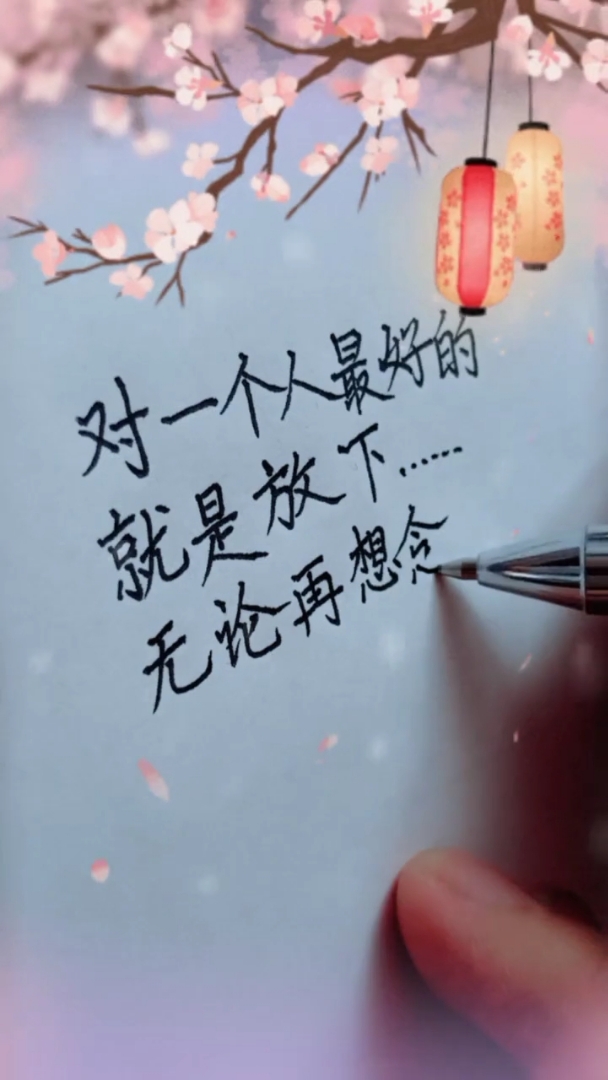 对一个人最好的
就是放下……
无论再想念